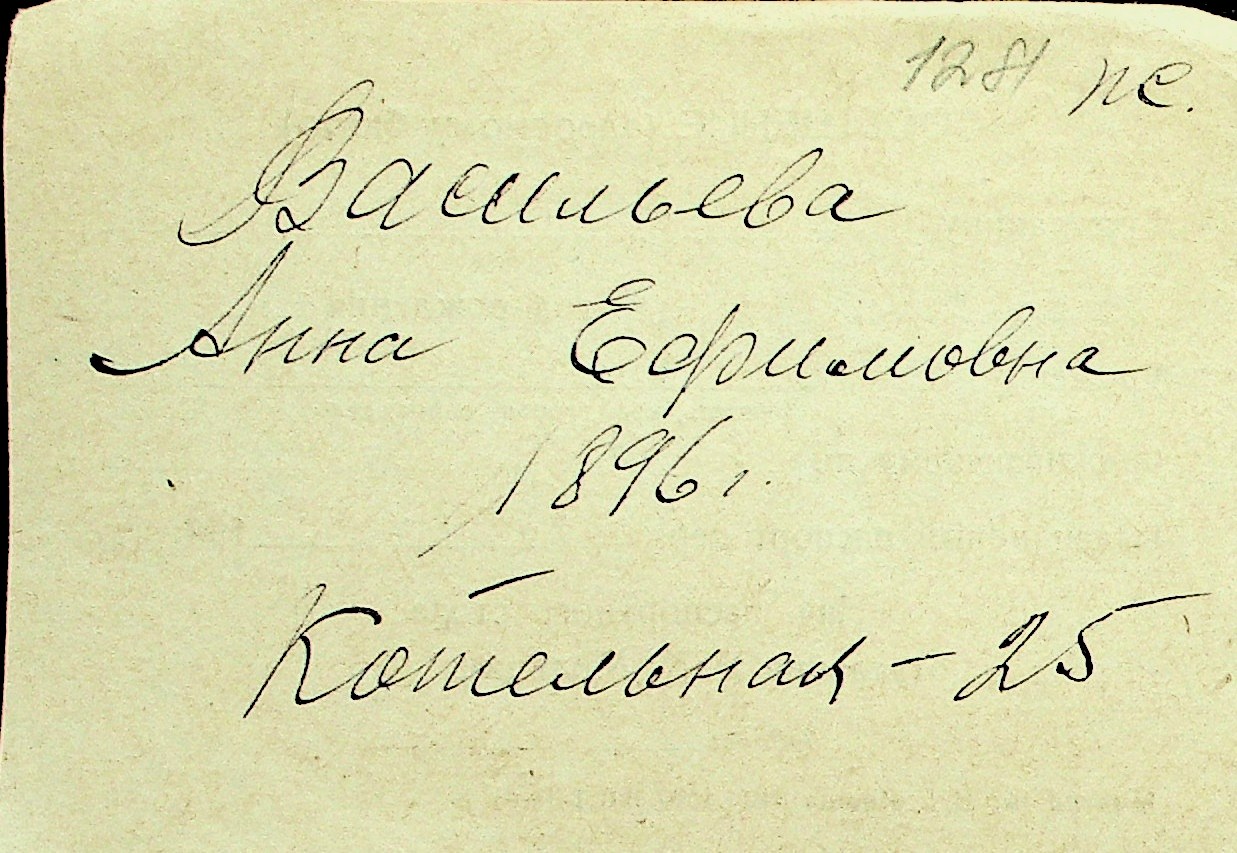 1281 пс.
Васильева
Анна Ефимовна
1896 г.
Котельная - 25